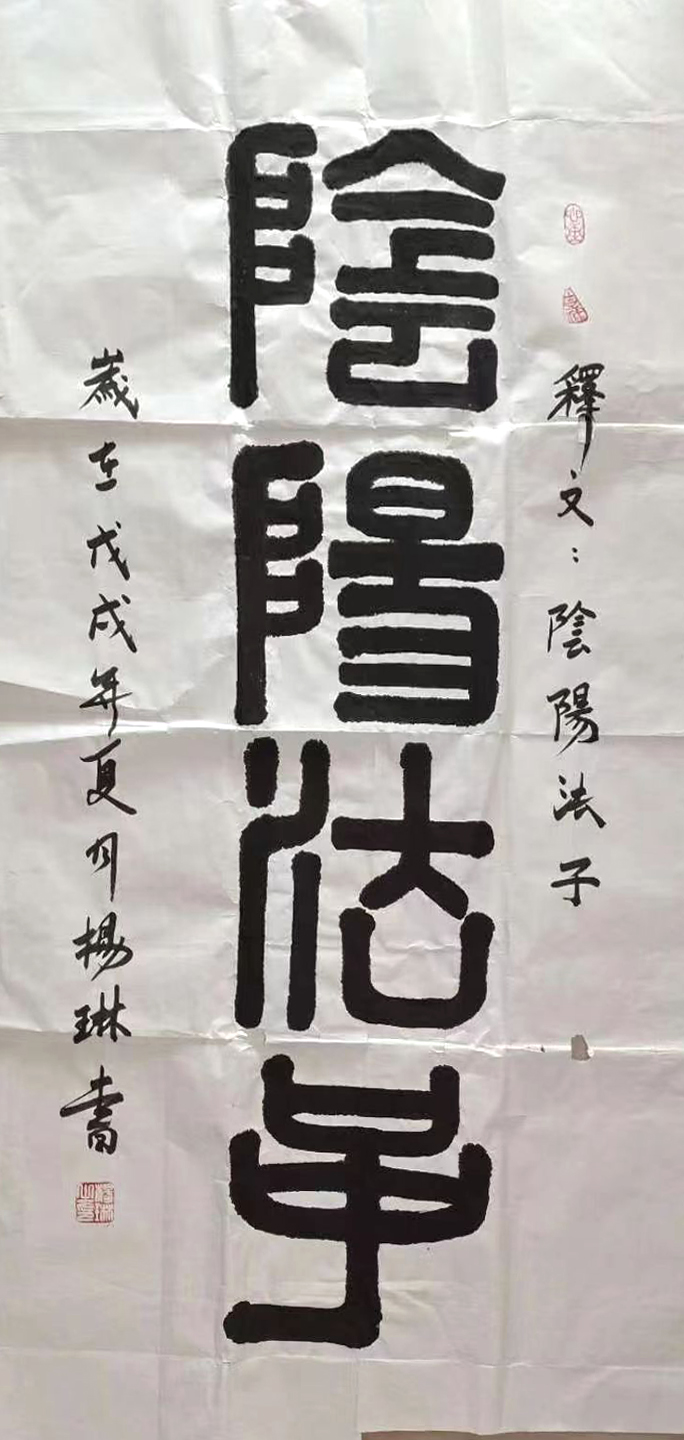 陰陽法子
釋文：陰陽法子
歲在戊戌年夏月楊琳書